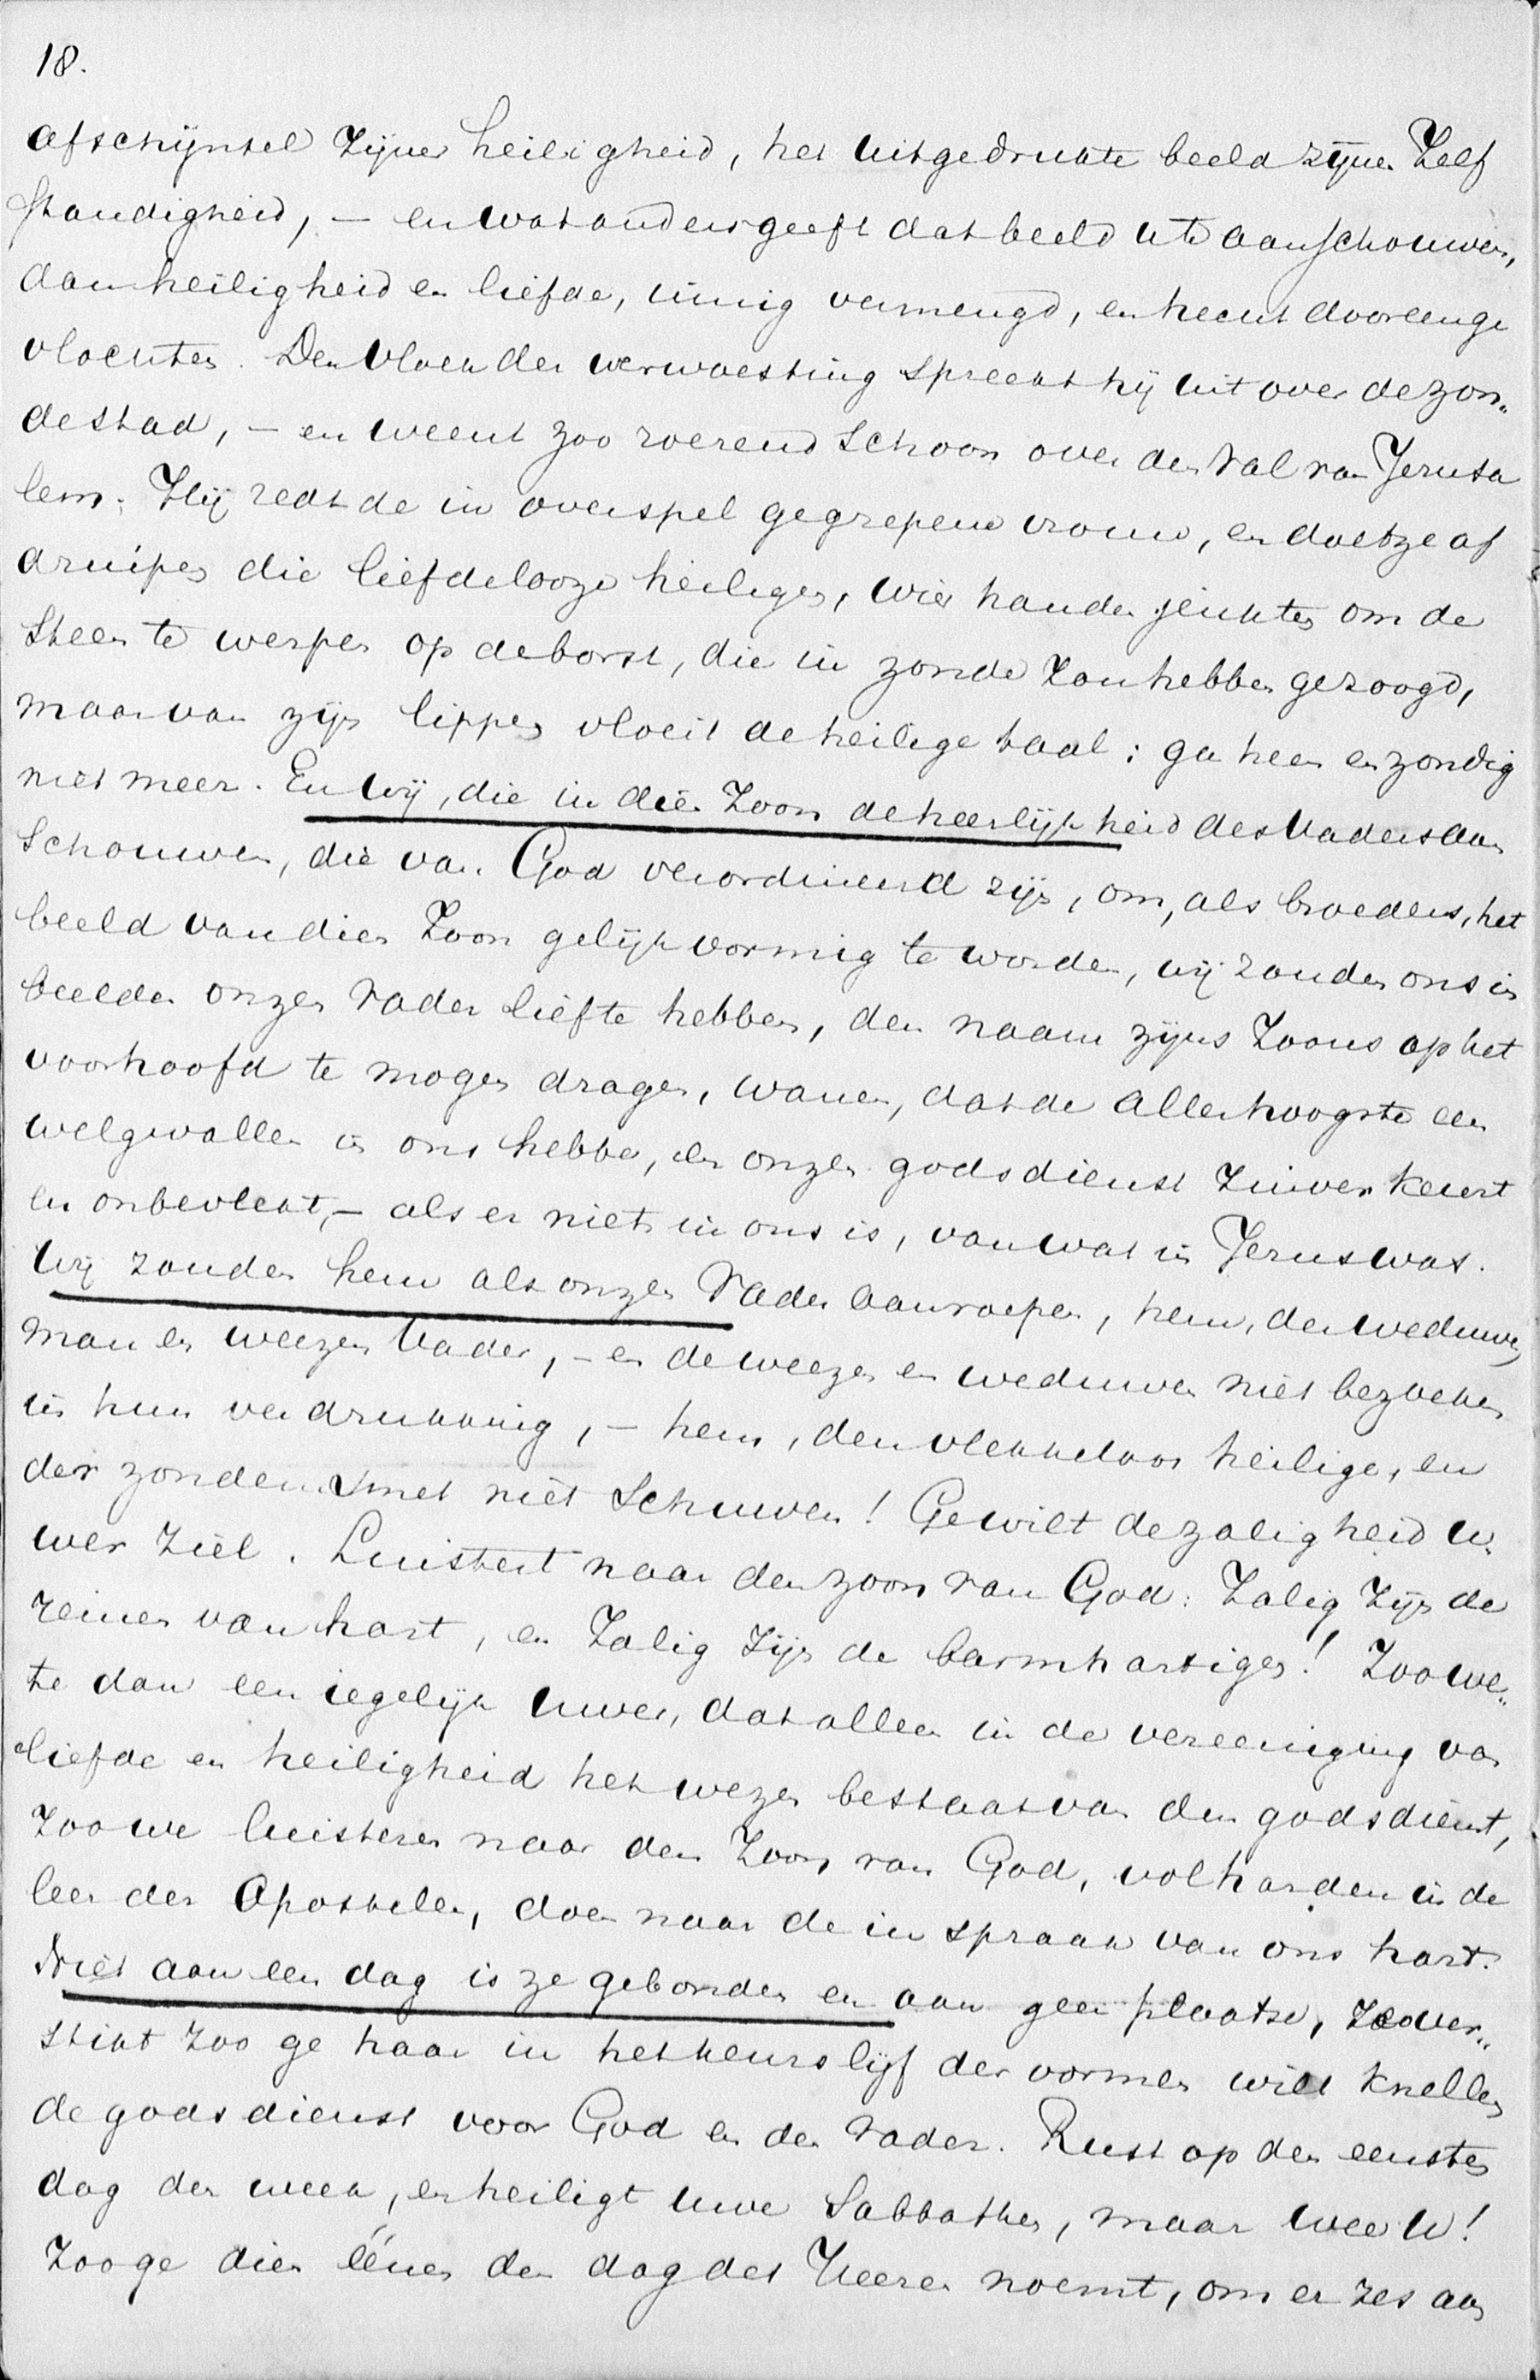 18.
afschijnsel zijner heiligheid, het uitgedrukte beeld zijner zelf
standigheid, – en wat anders geeft dat beeld u te aanschouwen,
dan heiligheid en liefde, innig vermengd, en hecht dooreenge
vlochten. Den vloek der verwoesting spreekt hij uit over de zon„
destad, – en weent zoo roerend schoon over den val van Jerusa
lem. Hij redt de in overspel gegrepene vrouw, en doet ze af
druipen die liefdelooze heiligen, wier handen jeukten om de
steen te werpen op de borst, die in zonde zou hebben gezoogd,
maar van zijn lippen vloeit de heilige taal: ga heen en zondig
niet meer. En wij, die in dien Zoon de heerlijkheid des Vaders aan
schouwen, die van God verordineerd zijn, om, als broeders, het
beeld van dien Zoon gelijkvormig te worden, wij zouden ons in
beelden onzen Vader lief te hebben, den naam zijns Zoons op het
voorhoofd te mogen dragen, wanen, dat de Allerhoogste een
welgevallen in ons hebbe, en onzen godsdienst zuiver keurt
en onbevlekt, – als er niets in ons is, van wat in Jezus was.
Wij zouden hem als onzen Vader aanroepen, hem, der weduwen
man en weezen Vader, – en de weezen en weduwen niet bezoeken
in hun verdrukking, – hem, den vlekkeloos heilige, en
der zonden smet niet schuwen! Ge wilt de zaligheid u„
wer ziel. Luistert naar den zoon van God: Zalig zijn de
reinen van hart, en Zalig zijn de barmhartigen! Zoo we„
te dan een iegelijk uwer, dat alleen in de vereeniging van
liefde en heiligheid het wezen bestaat van den godsdienst,
zoo we luisteren naar den Zoon van God, volharden in de
leer der Apostelen, doen naar de inspraak van ons hart.
Niet aan een dag is ze gebonden en aan geen plaatse, ze ver„
stikt zoo ge haar in het keurslijf der vormen wilt knellen
de godsdienst voor God en den Vader. Rust op den eersten
dag der week, en heiligt uwe Sabbathen, maar wee u!
zoo ge dien éénen den dag des Heeren noemt, om er zes aan